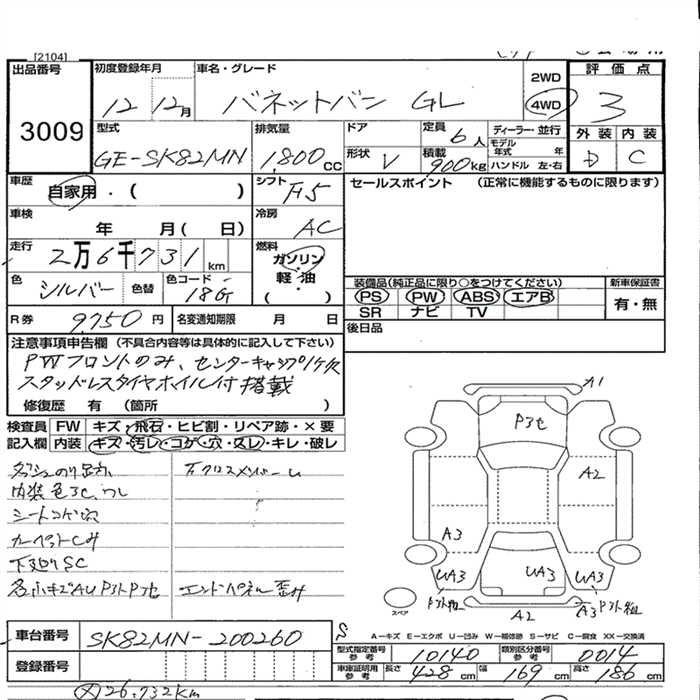 [2104]
出品番号
3009
初度登録年月
12 12月
車名・グレード
バネットバン GL
2WD
4WD
評価点
3
外装 内装
D C
型式
GE-SK82MN
排気量
1,800cc
ドア
形状 V
定員 6人
積載 900kg
ディーラー・並行
モデル年式 年
ハンドル 左・右
車歴
自家用・( )
シフト F5
セールスポイント (正常に機能するものに限ります)
車検
年 月( 日)
冷房 AC
走行
2万6千731km
燃料
ガソリン
軽・油
( ・ )
色
シルバー
色替
色コード
18G
装備品(純正品に限り○をつけてください)
PS PW ABS エアB
SR ナビ TV
新車保証書
有・無
R券 9,750円
名変通知期限 月 日
後日品
注意事項申告欄 (不具合内容等は具体的に記入して下さい)
PWフロントのみ、センターキャップ1ケ欠
スタッドレスタイヤホイル付 搭載
修復歴 有 (箇所 )
検査員 FW キズ・飛石・ヒビ割・リペア跡・×要
記入欄 内装 キズ・汚レ・コゲ・穴・スレ・キレ・破レ
ダッシュのり
内装色
シートコゲ穴
カーペット
下廻りSC
各小キズAU
クロスメンバー
エンドパネル歪み
A1
A2
A3
UA3
UA3
UA3
A2
A3
スペア
A-キズ E-エクボ U-凹み W-補修跡 S-サビ C-腐食 XX-交換済
車台番号 SK82MN-200260
登録番号
型式指定番号 参考 10140
類別区分番号 参考 0014
車庫証明用 参考 長さ 428cm 幅 169cm 高さ 186cm
26,732km